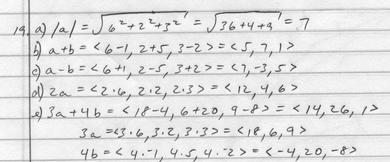 19. a) |a| = √(6²+2²+3²) = √(36+4+9) = 7
b) a+b = <6-1, 2+5, 3-2> = <5, 7, 1>
c) a-b = <6+1, 2-5, 3+2> = <7, -3, 5>
d) 2a = <2·6, 2·2, 2·3> = <12, 4, 6>
e) 3a + 4b = <18-4, 6+20, 9-8> = <14, 26, 1>
3a = <3·6, 3·2, 3·3> = <18, 6, 9>
4b = <4·-1, 4·5, 4·-2> = <-4, 20, -8>